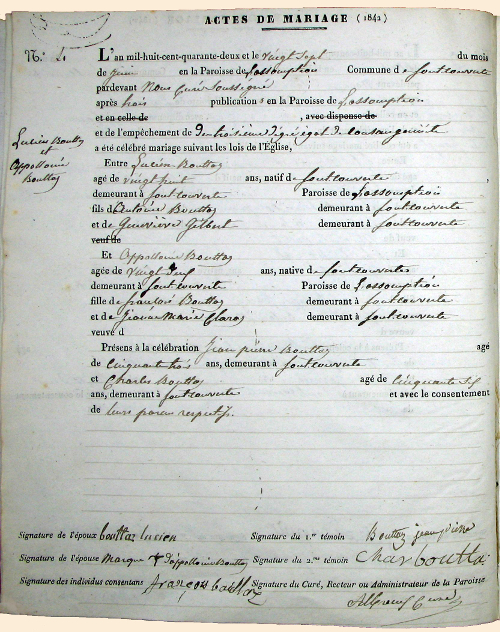 ACTES DE MARIAGE (1842)
N.° 4
L'an mil-huit-cent-quarante-deux et le vingt sept du mois
de juin en la Paroisse de L'assomption Commune de fontcouverte
pardevant Nous Curé soussigné
après trois publications en la Paroisse de L'assomption
et en celle de , avec dispense de
et de l'empêchement de du troisieme degré égal de consanguinité
a été célébré mariage suivant les lois de l'Église,
Lucien Bouttaz
et
Appollonie
Bouttaz
Entre Lucien Bouttaz
agé de vingt huit ans, natif de fontcouverte
demeurant à fontcouverte Paroisse de L'assomption
fils d'Antoine Bouttaz demeurant à fontcouverte
et de Genevieve Gilbert demeurant à fontcouverte
veuf de
Et Appollonie Bouttaz
agée de vingt ans, native de fontcouverte
demeurant à fontcouverte Paroisse de L'assomption
fille de françois Bouttaz demeurant à fontcouverte
et de Jeanne Marie Claraz demeurant à fontcouverte
veuve d
Présens à la célébration Jean pierre Bouttaz agé
de Cinquante trois ans, demeurant à fontcouverte
et Charles Bouttaz agé de Cinquante
ans, demeurant à fontcouverte et avec le consentement
de leurs peres respectifs.
Signature de l'époux bouttaz lucien Signature du 1.er témoin Bouttaz jean pierre
Signature de l'épouse Marque + d'appollonie Bouttaz Signature du 2.me témoin Char boutta
Signature des individus consentans françois bouttaz Signature du Curé, Recteur ou Administrateur de la Paroisse
Curé